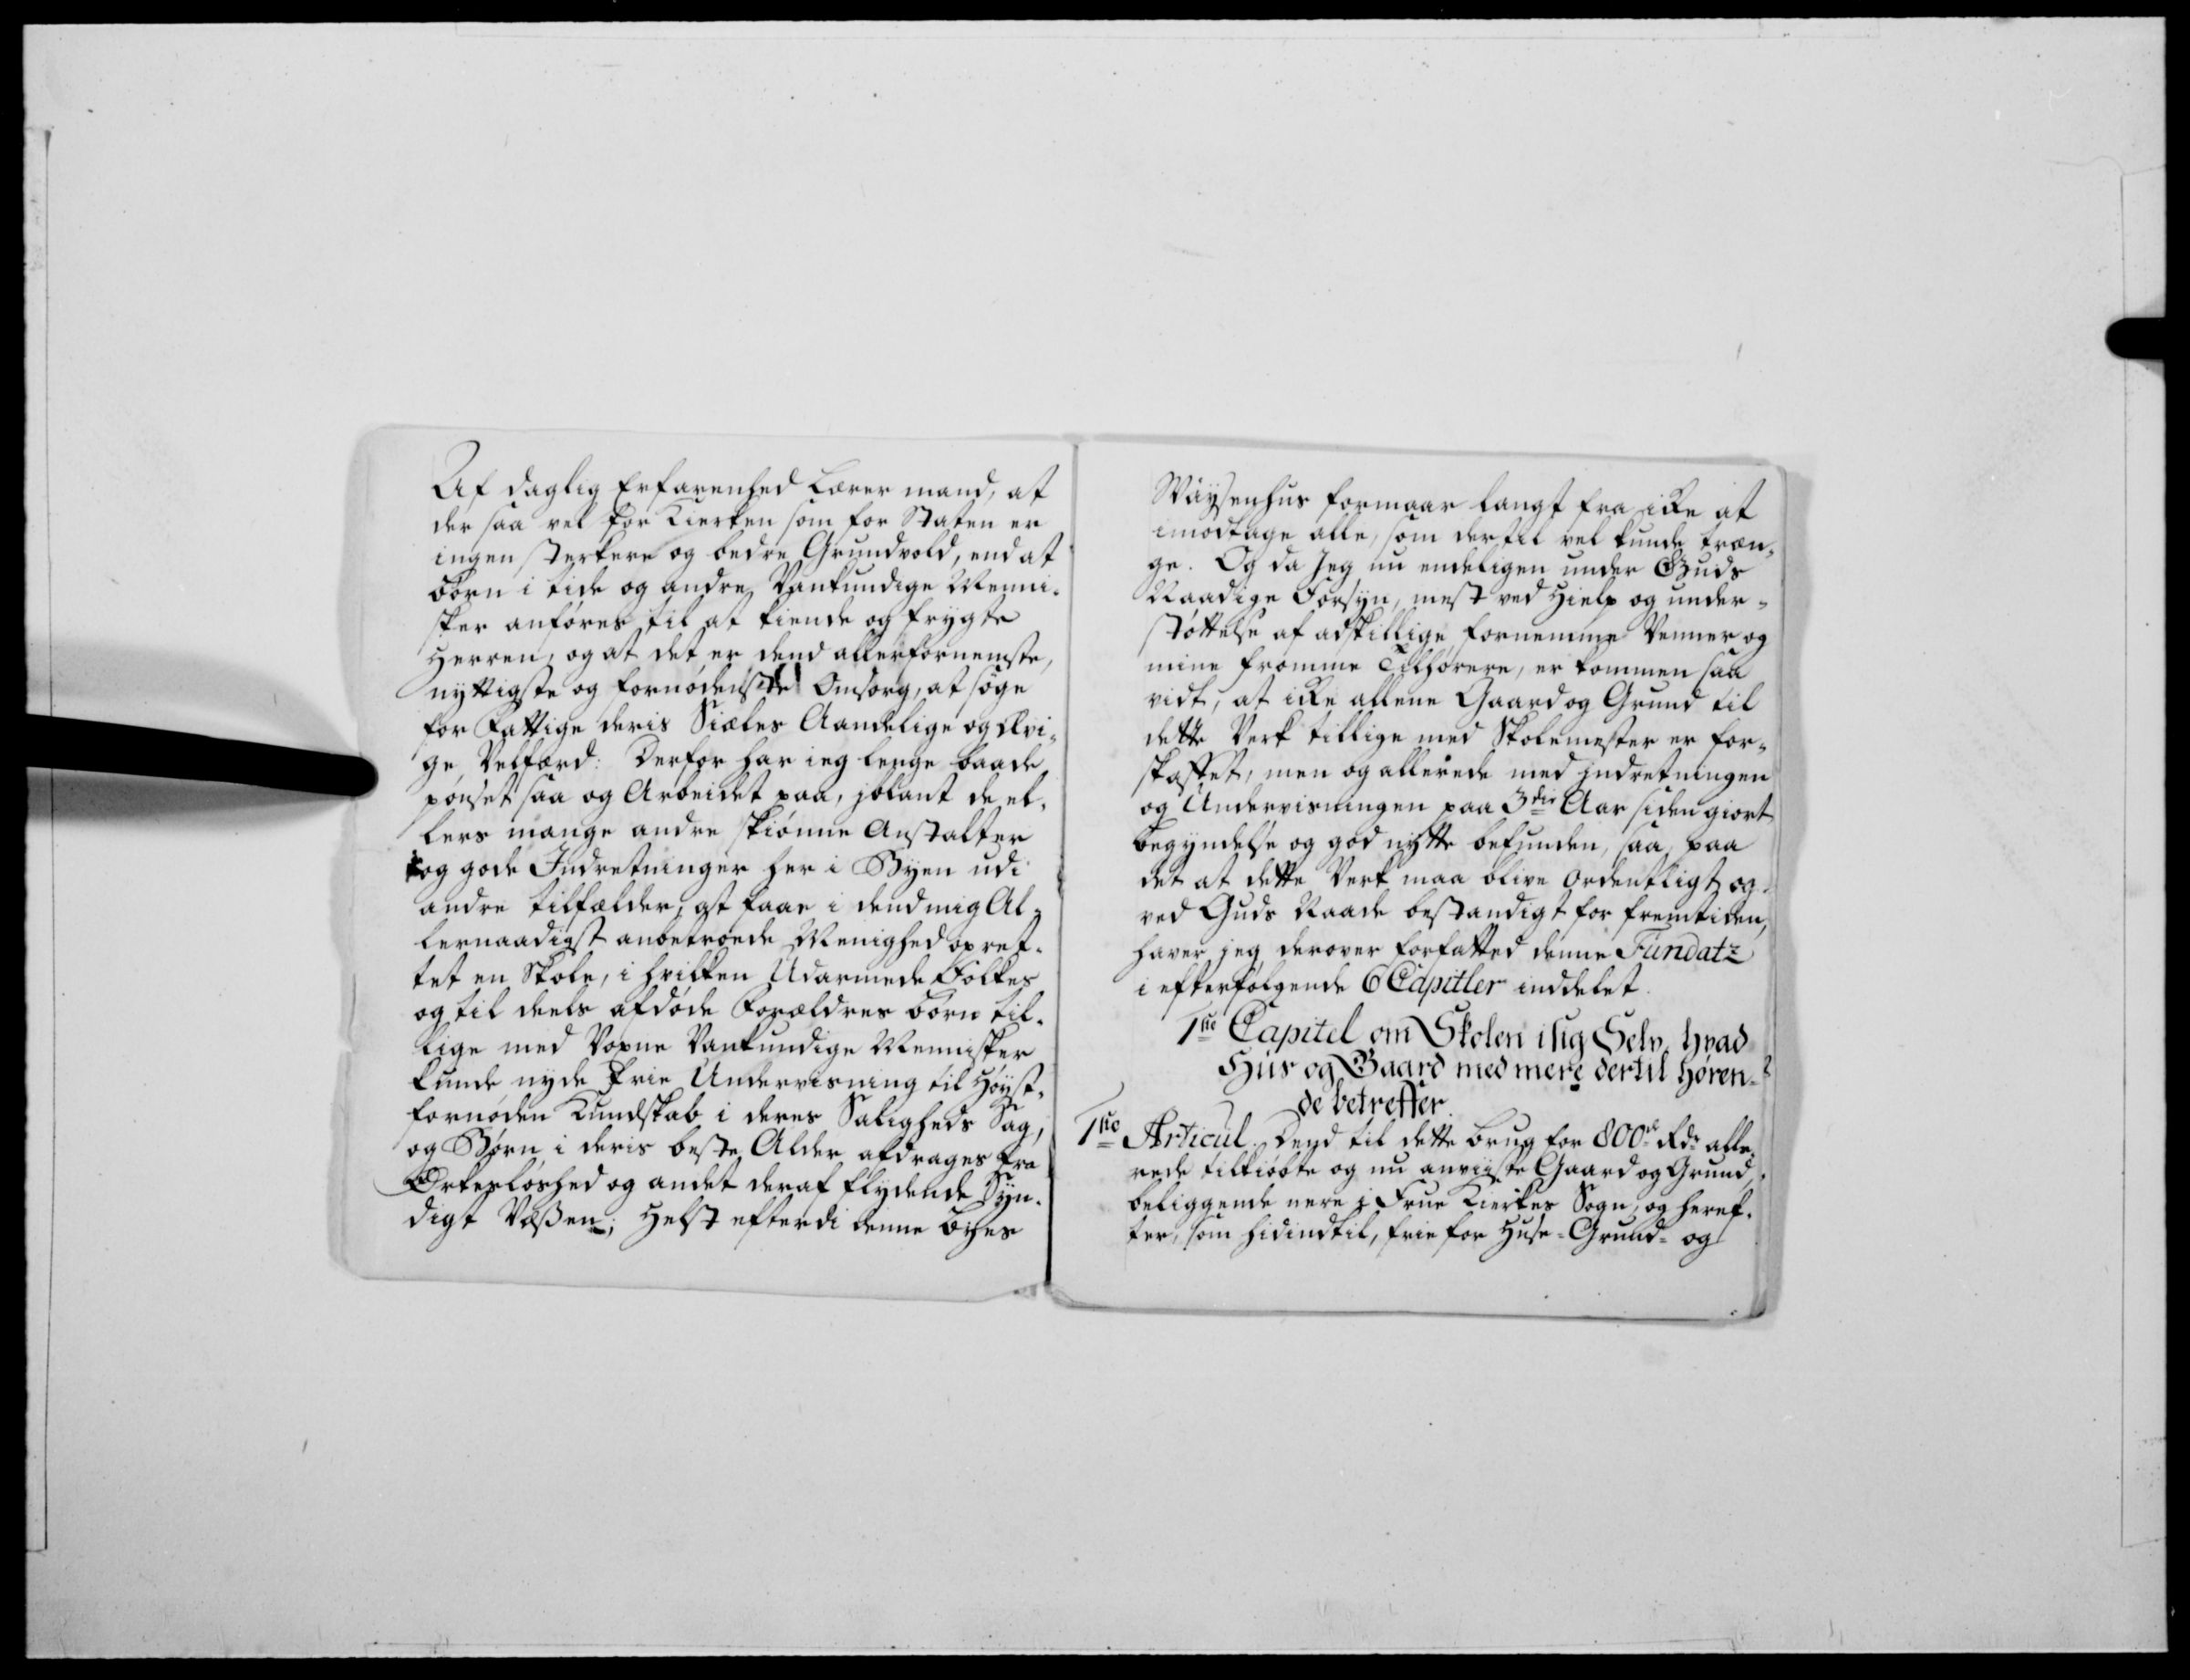 Af daglig Erfarenhed Lærer mand, at
der saa vel for Kierken som for Staten er
ingen sterkere og bedre Grundvold, end at
börn i tide og andre Vankundige Menni-
sker anföres til at kiende og frygte
Herren, og at det er dend allerfornemste,
nyttigste og fornödenste Omsorg, at söge
for Fattige deris Siæles Aandelige og Ævi-
ge Velfærd: Derfor har ieg lenge baade
pönset saa og Arbeidet paa, jblant de el-
lers mange andre skiönne Anstalter
og gode Indretninger her i Byen udi
andre tilfælder, at faae i dend mig Al-
lernaadigst anbetroede Menighed opret-
tet en Skole, i hvilken Udarmede Folkes
og til deels afdöde Forældres börn til-
lige med Voxne Vankundige Mennisker
kunde nyde frie Undervisning til Höyst-
fornöden Kundskab i deres Saligheds Sag,
og Börn i deris beste Alder afdrages fra
Örkeslöshed og andet deraf flydende Syn-
digt Væßen; Helst efterdi denne Byes
Wäysenhus formaar langt fra ikke at
imodtage alle, som dertil vel kunde træn-
ge. Og da Jeg nu endeligen under Guds
Naadige Forsyn, mest ved Hielp og under-
stöttelse af adskillige fornemme Venner og
mine fromme Tilhörere, er kommen saa
vidt, at ikke allene Gaard og Grund til
dette Verk tillige med Skolemester er for-
skaffet, men og allerede med jndretningen
og Undervisningen paa 3die Aar siden giort
begyndelse og god nytte befunden, saa, paa
det at dette Verk maa blive Ordentligt og
ved Guds Naade bestandigt for fremtiden,
haver jeg derover forfatted denne Fundatz
i efterfölgende 6 Capitler inddelet.
1ste Capitel om Skolen i sig Selv, hvad
Huus og Gaard med mere dertil hören-
de betreffer.
1ste Articul. Dend til dette brug for 800de Rdr alle-
rede tilkiöbte og nu anviiste Gaard og Grund
beliggende nere i Frue Kierkes Sogn, og heref-
ter, som hidindtil, frie for Huse- Grund- og